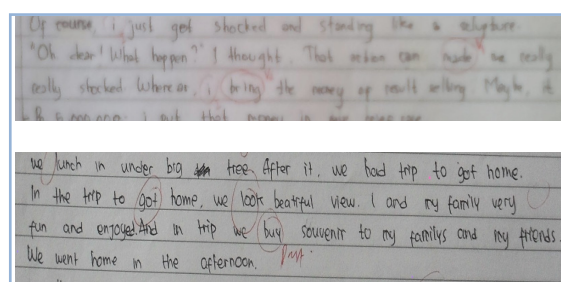 Of course, i just got shocked and standing like a sculpture.
"Oh dear! What happen?" I thought. That action can made me really
really shocked. Whereas, i bring the money of result selling. Maybe, it
i put that money in
we lunch in under big tree. After it, we had trip to got home.
In the trip to got home, we look beatiful view. I and my family very
fun and enjoyed. And in trip we buy souvenir to my familys and my friends.
We went home in the afternoon.